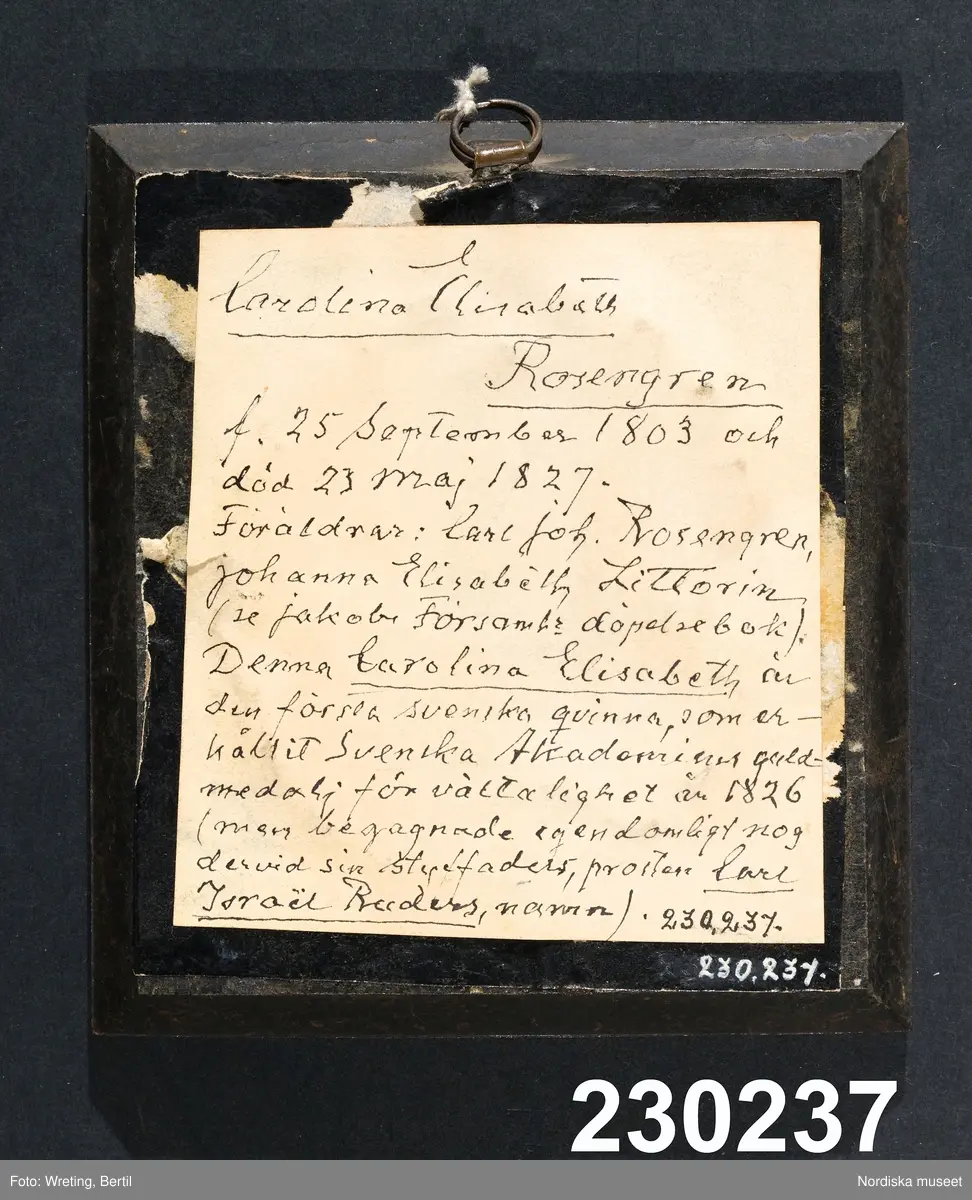 Carolina Elisabeth
Rosengren
f. 25 September 1803 och
död 23 maj 1827.
Föräldrar: Carl Joh. Rosengren,
Johanna Elisabeth Littorin
(se Jakobs Församl:s döpelsebok).
Denna Carolina Elisabeth är
den första svenska qvinna, som er-
hållit Svenska Akademiens guld-
medalj för vältalighet år 1826
(men begagnade egendomligt nog
dervid sin styffaders, prosten Carl
Israël Ruders, namn). 230,237.
230,237.
230237
Foto: Wreting, Bertil
Nordiska museet